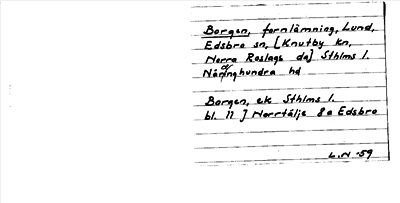 Borgen, fornlämning, Lund,
Edsbro sn, [Knutby kn,
Norra Roslags ds] Sthlms l.
Närdinghundra hd
Borgen, ek Sthlms l.
bl. 11 ] Norrtälje 8a Edsbro
L.N -59